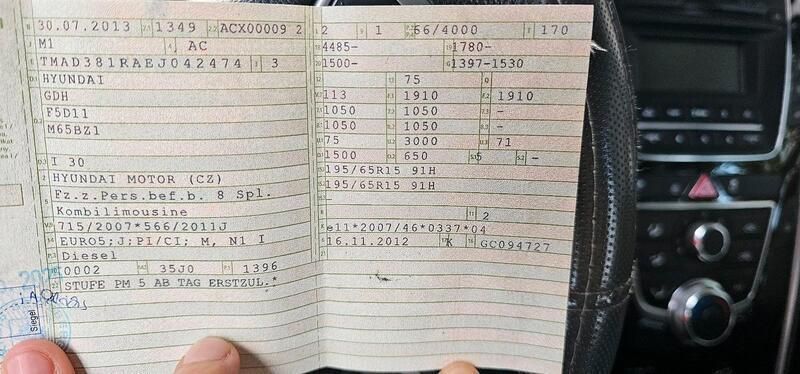 30.07.2013 1349 ACX00009 2
M1 AC
TMAD381RAEJ042474 3
HYUNDAI
GDH
F5D11
M65BZ1
I 30
HYUNDAI MOTOR (CZ)
Fz.z.Pers.bef.b. 8 Spl.
Kombilimousine
715/2007*566/2011J
EURO5;J;PI/CI; M, N1 I
Diesel
0002 35J0 1396
STUFE PM 5 AB TAG ERSTZUL.*
Siegel
2 1 66/4000 170
4485- 1780-
1500- 1397-1530
12 75
113 1910 1910
1050 1050 -
1050 1050 -
75 3000 71
1500 650 5 -
195/65R15 91H
195/65R15 91H
-
2
e11*2007/46*0337*04
16.11.2012 K GC094727